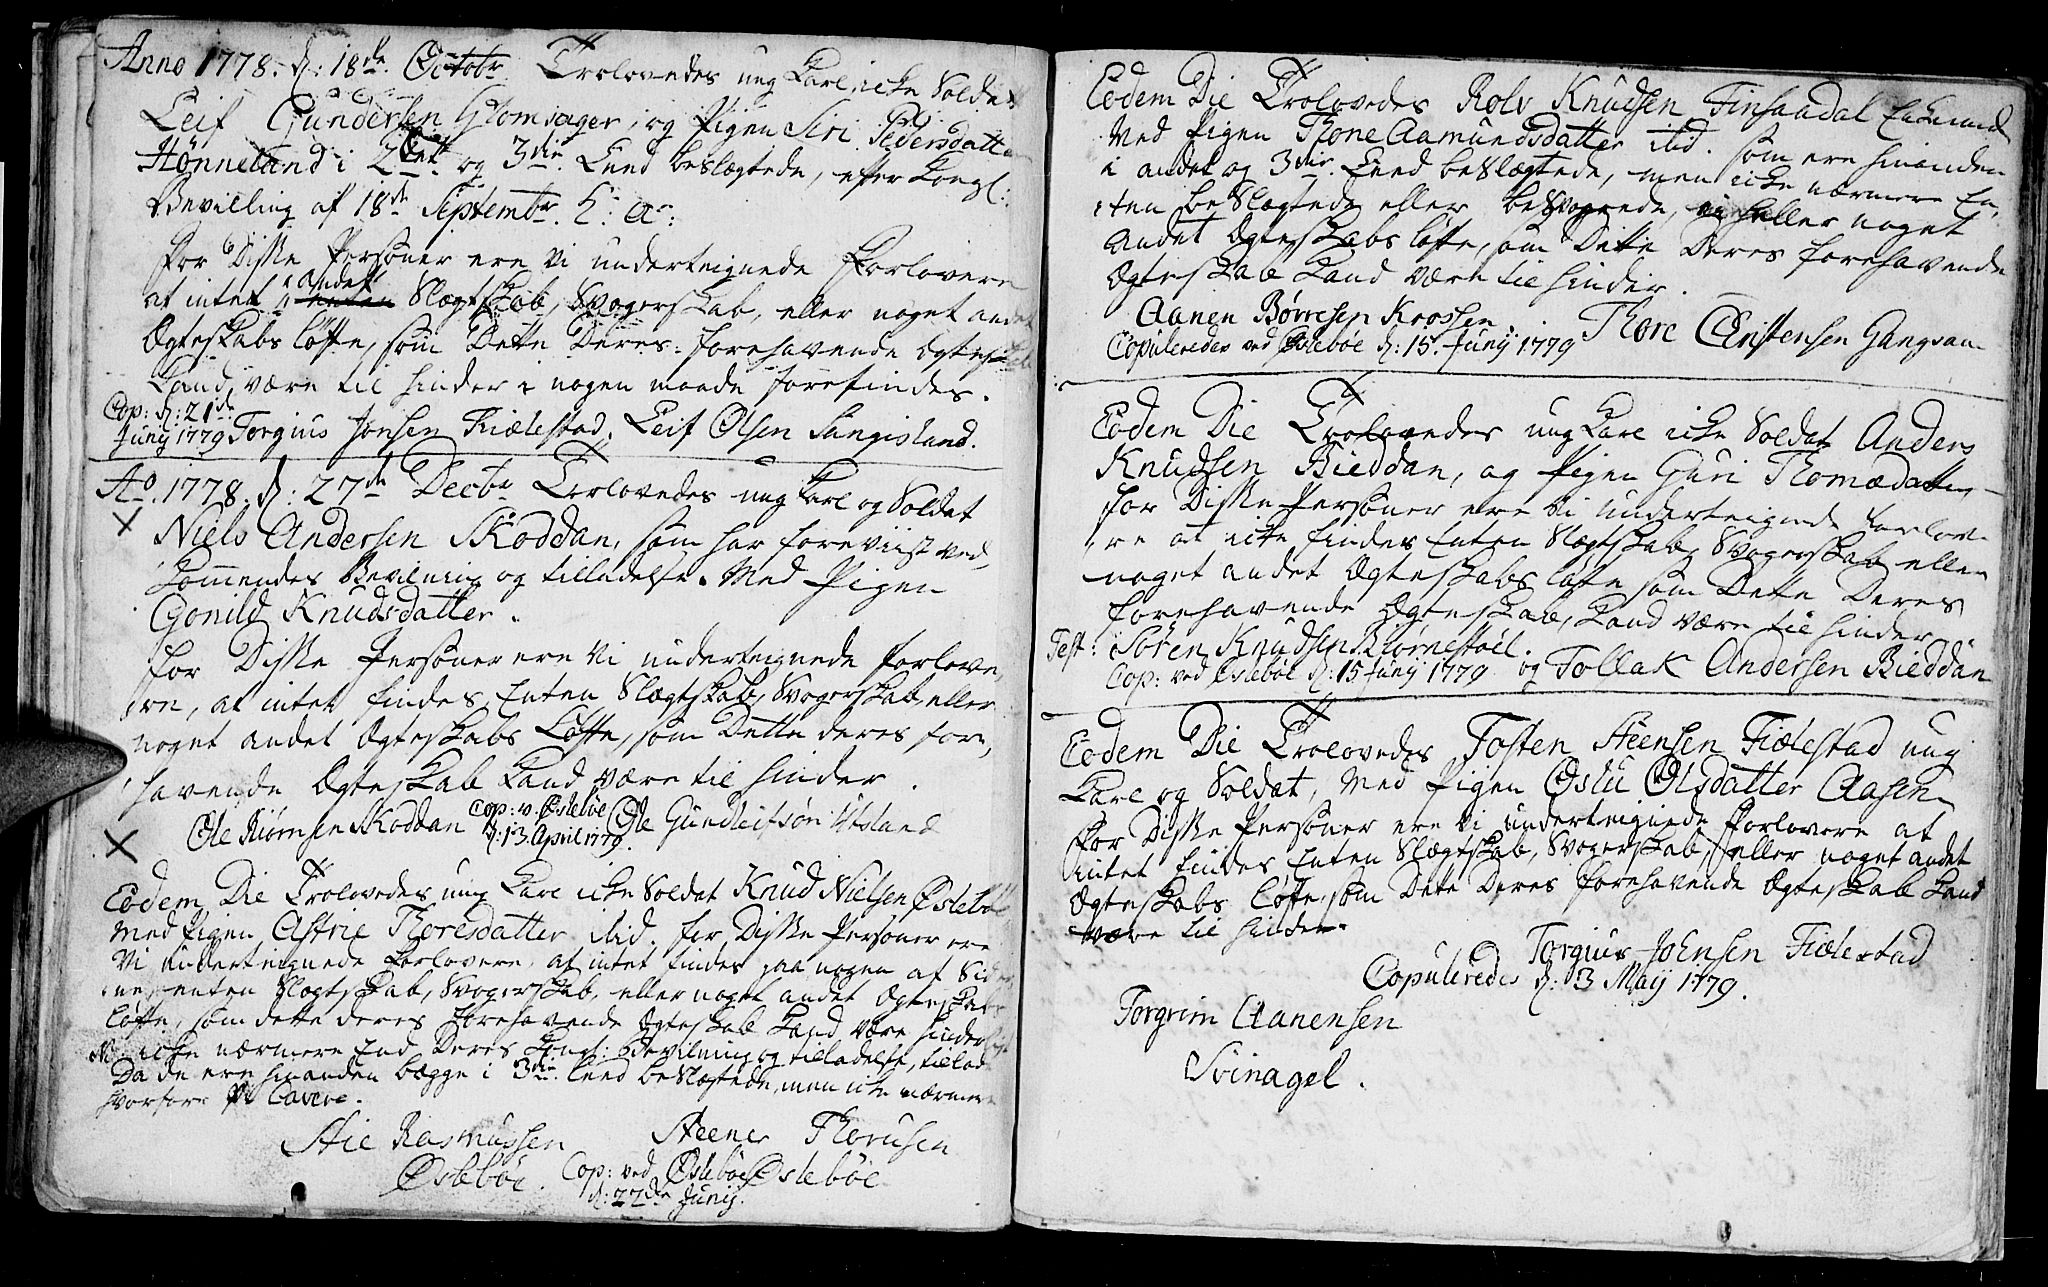 Anno 1778. d: 18de Octobr Trolovedes ung Karl icke Soldat
Leif Gundersen Glomsager, og Pigen Siri Pedersdatter
Hønneland i 2det og 3die Leed beslægtede, efter Kongl:
Bevilling af 18de Septembr h: a:
For Disse Personer ere Vi underteignede Forlovere
at intet andet Slegtskab, Svogerskab, eller noget andet
Ægteskabs løfte, som Dette Deres forehavende Ægteskab
Kand være til hinder i nogen maade forefindes.
Cop: d: 21de
Junij 1779 Torgius Jonsen Fiælestad, Leif Olsen Sangisland.
Ao 1778. d: 27de Decbr Trolovedes ung Karl og Soldat
Niels Andersen Skoddan, som har foreviist ved-
kommendes Bevilning og tilladelse. Med Pigen
Gonild Knudsdatter.
For Disse Personer ere Vi underteignede forlove,
ere, at intet findes Enten Slægtskab, Svogerskab, eller
noget andet Ægteskabs Løfte, som Dette deres fore,
havende Ægteskab Kand være til hinder.
Ole Biørnsen Skoddan Cop: v. Øslebøe Ole Gundleifsøn Utsland
d: 13 April 1779.
Eodem Die Trolovedes ung Karl icke Soldat Knud Nielsen Øslebøe
Med Pigen Astrie Thoresdatter ibid. for Disse Personer ere
Vi underteignede Forlovere, at intet findes paa nogen af Sider
ne, enten Slegtskab, Svogerskab, eller noget andet Ægteskabs
løfte, som dette deres forehavende Ægteskab Kand være hinder
icke nærmere End Deres Kongl: Bevilning og tilladelse, tillad
Da de ere hinanden begge i 3die leed beslægtede, men icke nærmere
hvorfore Vi Cavere.
Stie Rasmussen Steener Thorusen
Øslebøe. Cop: ved Øslebøe Øslebøe
d: 22de Junij.
Eodem Die Trolovedes Rolv Knudsen Finsaadal Enkemand
Med Pigen Thone Aamundsdatter ibid. som ere hinanden
i andet og 3die Leed beslægtede, men icke nærmere En,
ten beslægtede eller besvogrede, eller noget
Andet Ægteskabs løfte, som Dette Deres forehavende
Ægteskab Kand være til hinder.
Aanen Børresen Krossen Thore Christensen Gangsaa
Copuleredes ved Øslebøe d: 15. Junij 1779
Eodem Die Trolovedes ung Karl icke Soldat Anders
Knudsen Bieddan, og Pigen Guri Thomædatter
For Disse Personer ere Vi underteignede forlove-
re at icke findes Enten Slægtskab, Svogerskab eller
noget andet Ægteskabs løfte som Dette Deres
forehavende Ægteskab, Kand være til hinder.
Test: Søren Knudsen Biørnestøel.
Cop: ved Øslebøe d: 15 Junij 1779 og Tollak Andersen Bieddan
Eodem Die Trolovedes Tosten Steensen Fiælestad ung
Karl og Soldat, Med Pigen Oslu Olsdatter Aasen
For Disse Personer ere Vi underteignede Forlovere at
intet findes Enten Slægtskab, Svogerskab, eller noget andet
Ægteskabs løfte, som Dette Deres forehavende Ægteskab Kand
være til hinder.
Torgius Joensen Fiælestad
Copuleredes d: 3 Maij 1779.
Torgrim Aanensen
Svinagel.